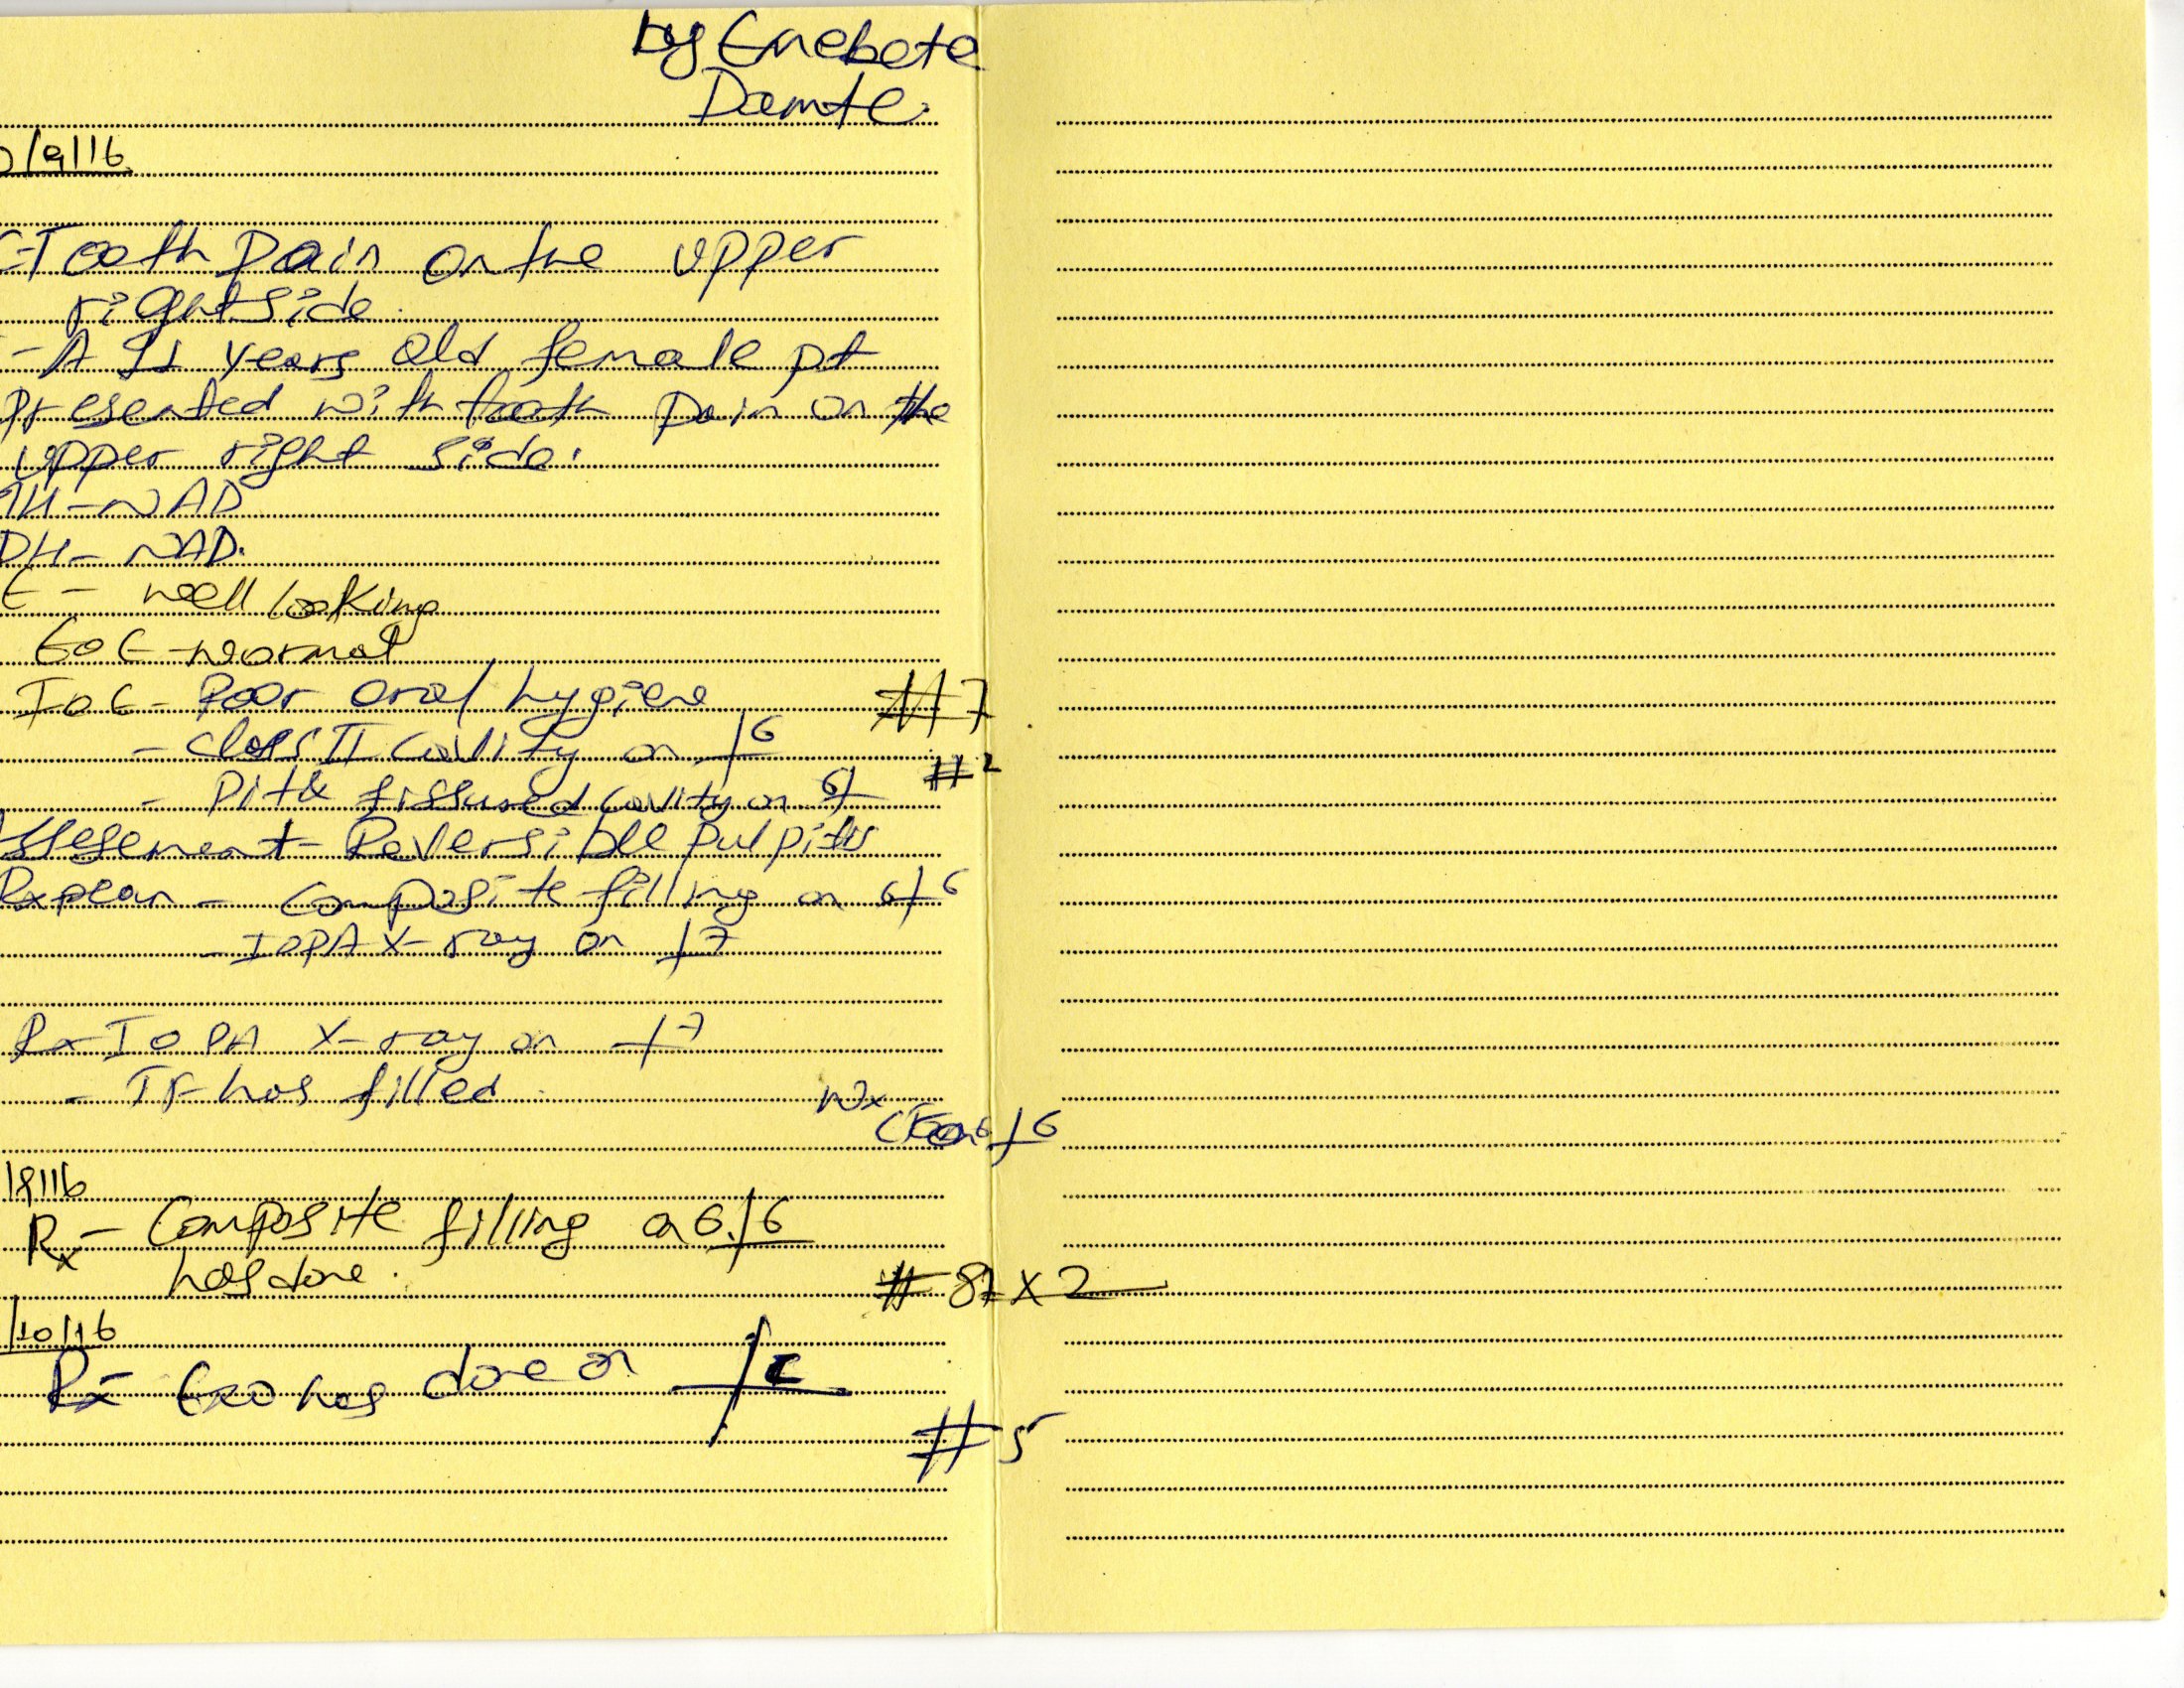 by Enebete
Damte.
/9/16
C-Tooth Pain on the upper
right side.
- A 11 years old female pt
presented with tooth pain on the
upper right side.
MH-NAD
DH-NAD.
E - well looking
EOE-normal
IOE-Poor oral hygiene #7
- class II cavity on /6
- Pit & fissured cavity on 6/ #2
Assesement-Reversible pulpitis
Rxplan - composite filling on 6/6
- IOPA X-ray on /7
Rx-IOPA X-ray on /7
- TF has filled.
Nx
CF on 6/6
/9/16
Rx- Composite filling on 6/6
has done. # 82 x 2
/10/16
Rx- Exo has done on /c
#5